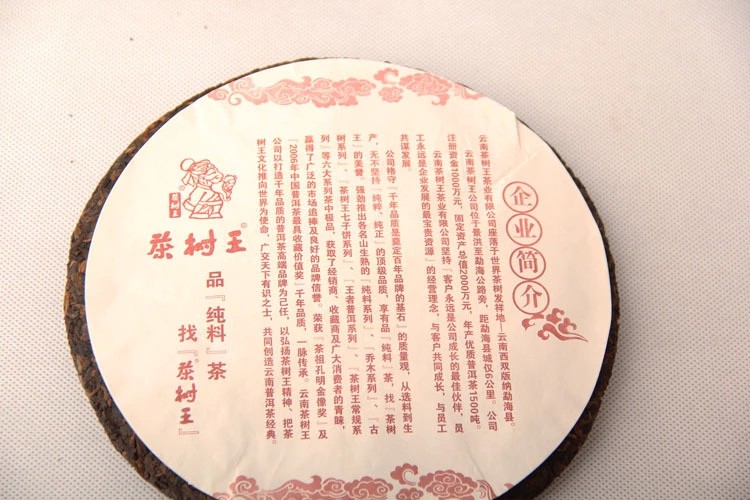 企业简介
云南茶树王茶业有限公司座落于世界茶树发祥地—云南西双版纳勐海县。
云南茶树王公司位于景洪至勐海公路旁，距勐海县城仅6公里。公司
注册资金1000万元，固定资产总值2000万元，年产优质普洱茶1500吨。
云南茶树王茶业有限公司坚持『客户永远是公司成长的最佳伙伴，员
工永远是企业发展的最宝贵资源』的经营理念，与客户共同成长，与员工
共谋发展。
公司恪守『千年品质是奠定百年品牌的基石』的质量观，从选料到生
产，无不坚持『纯粹、纯正』的顶级品质，享有品『纯料』茶，找『茶树
王』的美誉。强劲推出各名山生熟的『纯料系列』、『乔木系列』、『古
树系列』、『茶树王七子饼系列』、『王者普洱系列』、『茶树王常规系
列』等六大系列茶中极品，获取了经销商、收藏商及广大消费者的青睐，
赢得了广泛的市场追捧及良好的品牌信誉。荣获『茶祖孔明金像奖』及
『2006年中国普洱茶最具收藏价值奖』千年品质，一脉传承。云南茶树王
公司以打造千年品质的普洱茶高端品牌为己任，以弘扬茶树王精神、把茶
树王文化推向世界为使命，广交天下有识之士，共同创造云南普洱茶经典。
茶树王
茶树王©
品『纯料』茶
找『茶树王』